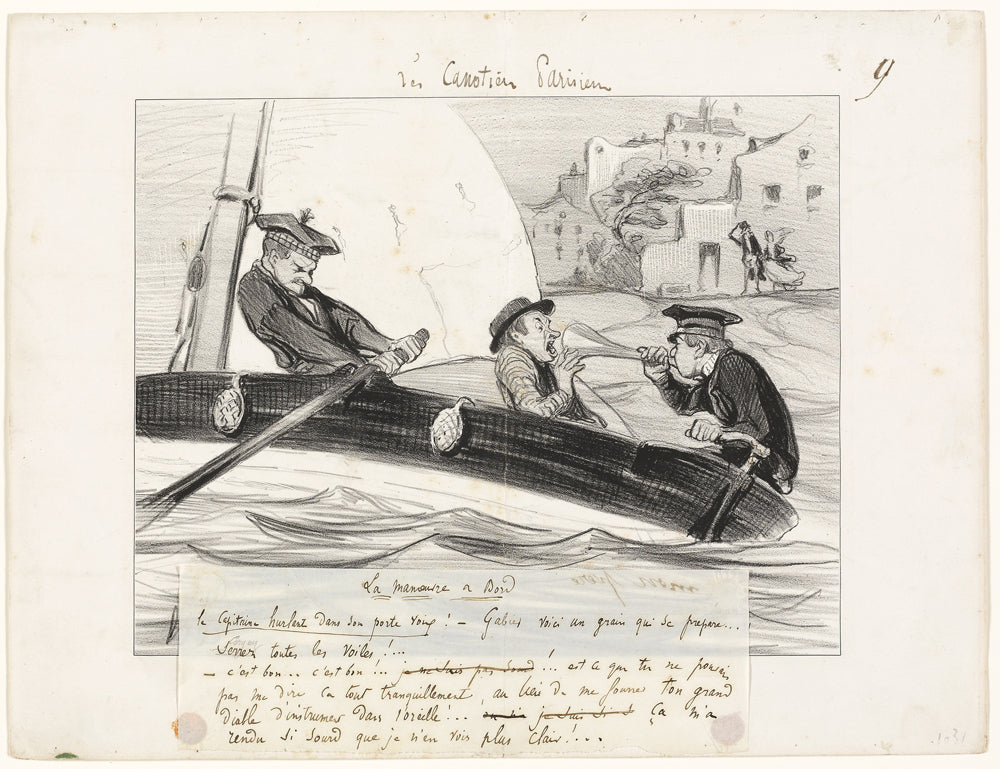 Les Canotiers Parisiens
9
La manœuvre a Bord
le Capitaine hurlant dans son porte voix! - Gabiers voici un grain qui se prépare...
Serrez toutes les voiles!...
- c'est bon.. c'est bon!... je ne suis pas sourd!... est ce que tu ne pouvais
pas me dire ça tout tranquillement, au lieu de me fourrer ton grand
Diable d'instrument dans l'oreille!... je suis si ça m'a
rendu si sourd que je n'en vois plus clair!...